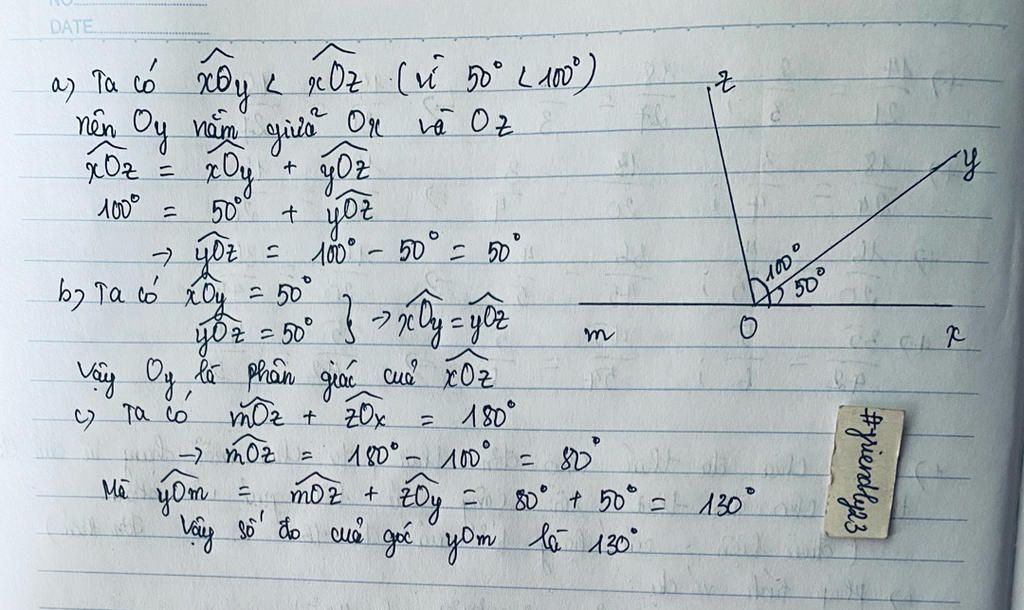 NO.
DATE
a) Ta có xÔy < xÔz (vì 50° < 100°)
nên Oy nằm giữa Ox và Oz
xÔz = xÔy + yÔz
100° = 50° + yÔz
→ yÔz = 100° - 50° = 50°
b) Ta có xÔy = 50°
yÔz = 50° } → xÔy = yÔz
Vậy Oy là phân giác của xÔz
c) Ta có mÔz + zÔx = 180°
→ mÔz = 180° - 100° = 80°
Mà yÔm = mÔz + zÔy = 80° + 50° = 130°
Vậy số đo của góc yOm là 130°
z
y
100°
50°
m
O
x
#friendly23